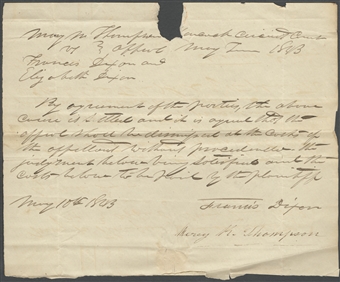 Mary M Thompson Newark Circuit Court
vs } Appeal May Term 1843
Francis Dixon and
Elizabeth Dixon
By agreement of the parties, the above
cause is settled and it is agreed that the
appeal shall be dismissed at the costs of
the appellant without procedendo the
judgment below being satisfied and the
costs below to be paid by the plaintiff
May 10th 1843 Francis Dixon
Mercy M. Thompson